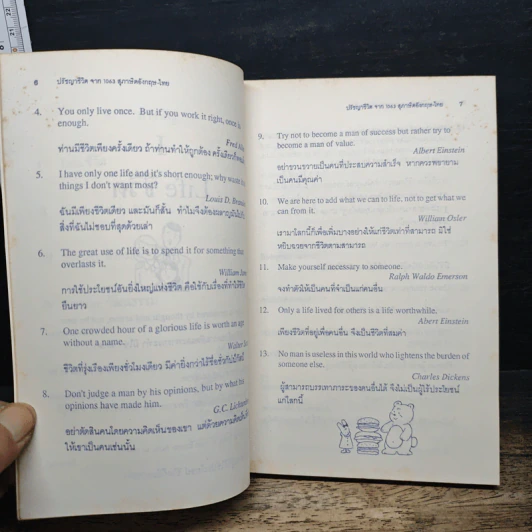 6 ปรัชญาชีวิต จาก 1063 สุภาษิตอังกฤษ-ไทย
4. You only live once. But if you work it right, once is
enough.
Fred
ท่านมีชีวิตเพียงครั้งเดียว ถ้าท่านทำให้ถูกต้อง ครั้งเดียวก็
5. I have only one life and it's short enough; why waste it
things I don't want most?
Louis D.
ฉันมีเพียงชีวิตเดียว และมันก็สั้น ทำไมจึงต้อง
สิ่งที่ฉันไม่ชอบที่สุดด้วยเล่า
6. The great use of life is to spend it for something that
overlasts it.
William
การใช้ประโยชน์อันยิ่งใหญ่แห่งชีวิต คือใช้กับเรื่องที่
ยืนยาว
7. One crowded hour of a glorious life is worth an age
without a name.
Walter
ชีวิตที่รุ่งเรืองเพียงชั่วโมงเดียว มีค่ายิ่งกว่าไร้ชื่อ
8. Don't judge a man by his opinions, but by what his
opinions have made him.
G.C.
อย่าตัดสินคนโดยความคิดเห็นของเขา แต่ด้วยความคิดเห็น
ให้เขาเป็นคนเช่นนั้น
ปรัชญาชีวิต จาก 1063 สุภาษิตอังกฤษ-ไทย 7
9. Try not to become a man of success but rather try to
become a man of value.
Albert Einstein
อย่าขวนขวายเป็นคนที่ประสบความสำเร็จ หากควรพยายาม
เป็นคนมีคุณค่า
10. We are here to add what we can to life, not to get what we
can from it.
William Osler
เรามาโลกนี้ก็เพื่อเพิ่มบางอย่างให้แก่ชีวิตเท่าที่สามารถ มิใช่
หยิบฉวยจากชีวิตตามสามารถ
11. Make yourself necessary to someone.
Ralph Waldo Emerson
จงทำตัวให้เป็นคนที่จำเป็นแก่คนอื่น
12. Only a life lived for others is a life worthwhile.
Abert Einstein
เพียงชีวิตที่อยู่เพื่อคนอื่น จึงเป็นชีวิตที่สมค่า
13. No man is useless in this world who lightens the burden of
someone else.
Charles Dickens
ผู้สามารถบรรเทาภาระของคนอื่นได้ จึงไม่เป็นผู้ไร้ประโยชน์
แก่โลกนี้